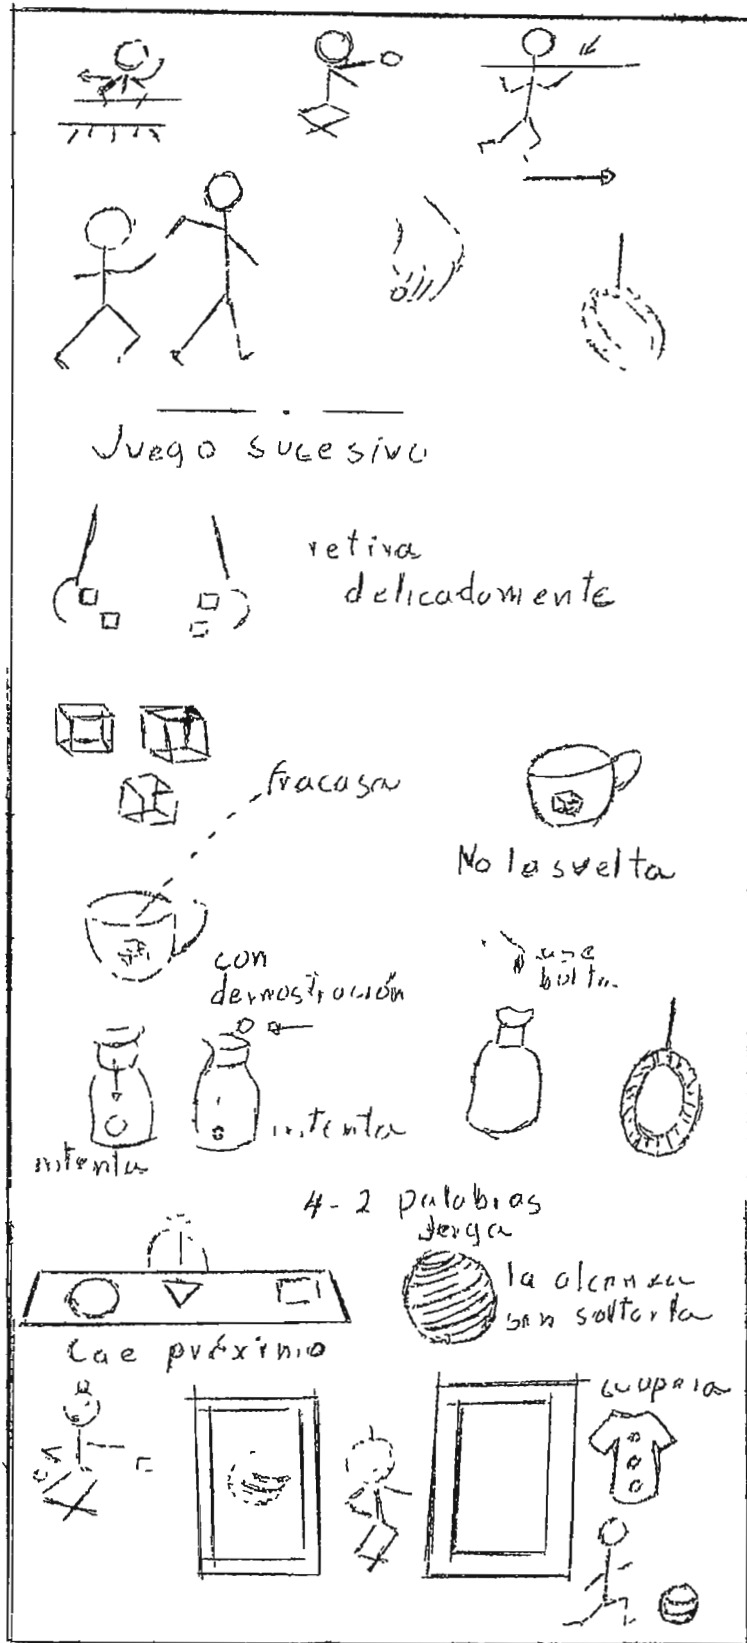 Juego sucesivo
retira
delicadamente
fracasa
No la suelta
con
demostración
una
bolita
intenta
intenta
4-2 palabras
Jerga
la alcanza
sin soltarla
Cae próximo